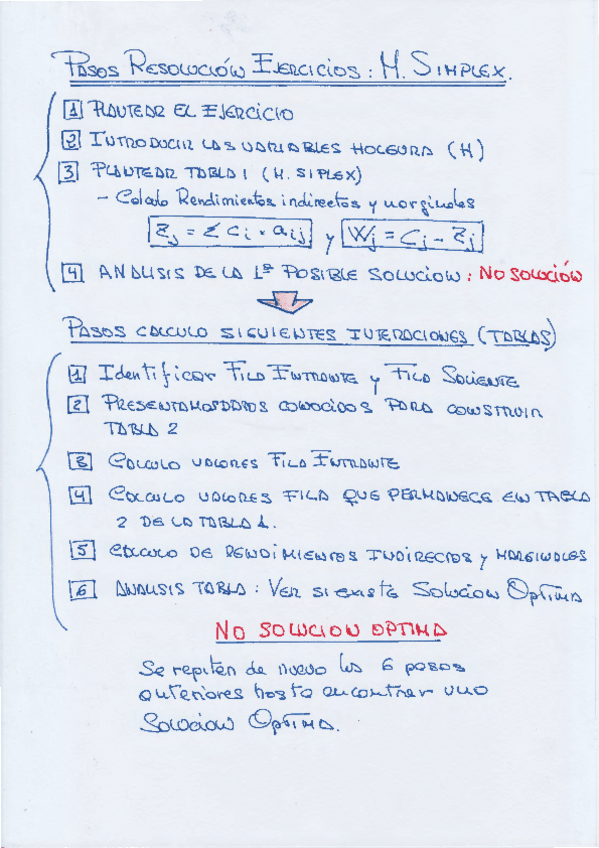 PASOS RESOLUCIÓN EJERCICIOS: M. SIMPLEX.
1 PLANTEAR EL EJERCICIO
2 INTRODUCIR LAS VARIABLES HOLGURA (H)
3 PLANTEAR TABLA 1 (M. SIPLEX)
- Calculo Rendimientos indirectos y marginales
Zj = Σ Ci · aij y Wj = Cj - Zj
4 ANALISIS DE LA 1ª POSIBLE SOLUCION: NO SOLUCIÓN
PASOS CALCULO SIGUIENTES ITERACIONES (TABLAS)
1 Identificar FILA ENTRANTE y FILA SALIENTE
2 PRESENTAMOS DATOS CONOCIDOS PARA CONSTRUIR
TABLA 2
3 CALCULO VALORES FILA ENTRANTE
4 CALCULO VALORES FILA QUE PERMANECE EN TABLA
2 DE LA TABLA 1.
5 CALCULO DE RENDIMIENTOS INDIRECTOS y MARGINALES
6 ANALISIS TABLA: VER SI EXISTE SOLUCION OPTIMA
NO SOLUCION OPTIMA
Se repiten de nuevo los 6 pasos
anteriores hasta encontrar una
SOLUCION OPTIMA.